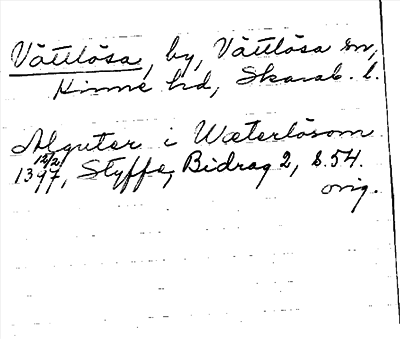 Vättlösa, by, Vättlösa sn,
Kinne hd, Skarab. l.
Alguter i Wæterlösom
12/2 1397, Styffe, Bidrag 2, s. 54.
orig.